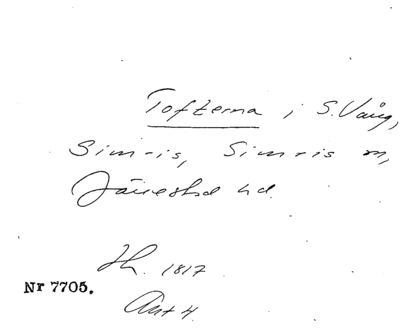 Tofterna i S. Vång,
Simris, Simris m,
Järrestad hd.
Th. 1817
Nr 7705.
Akt 4